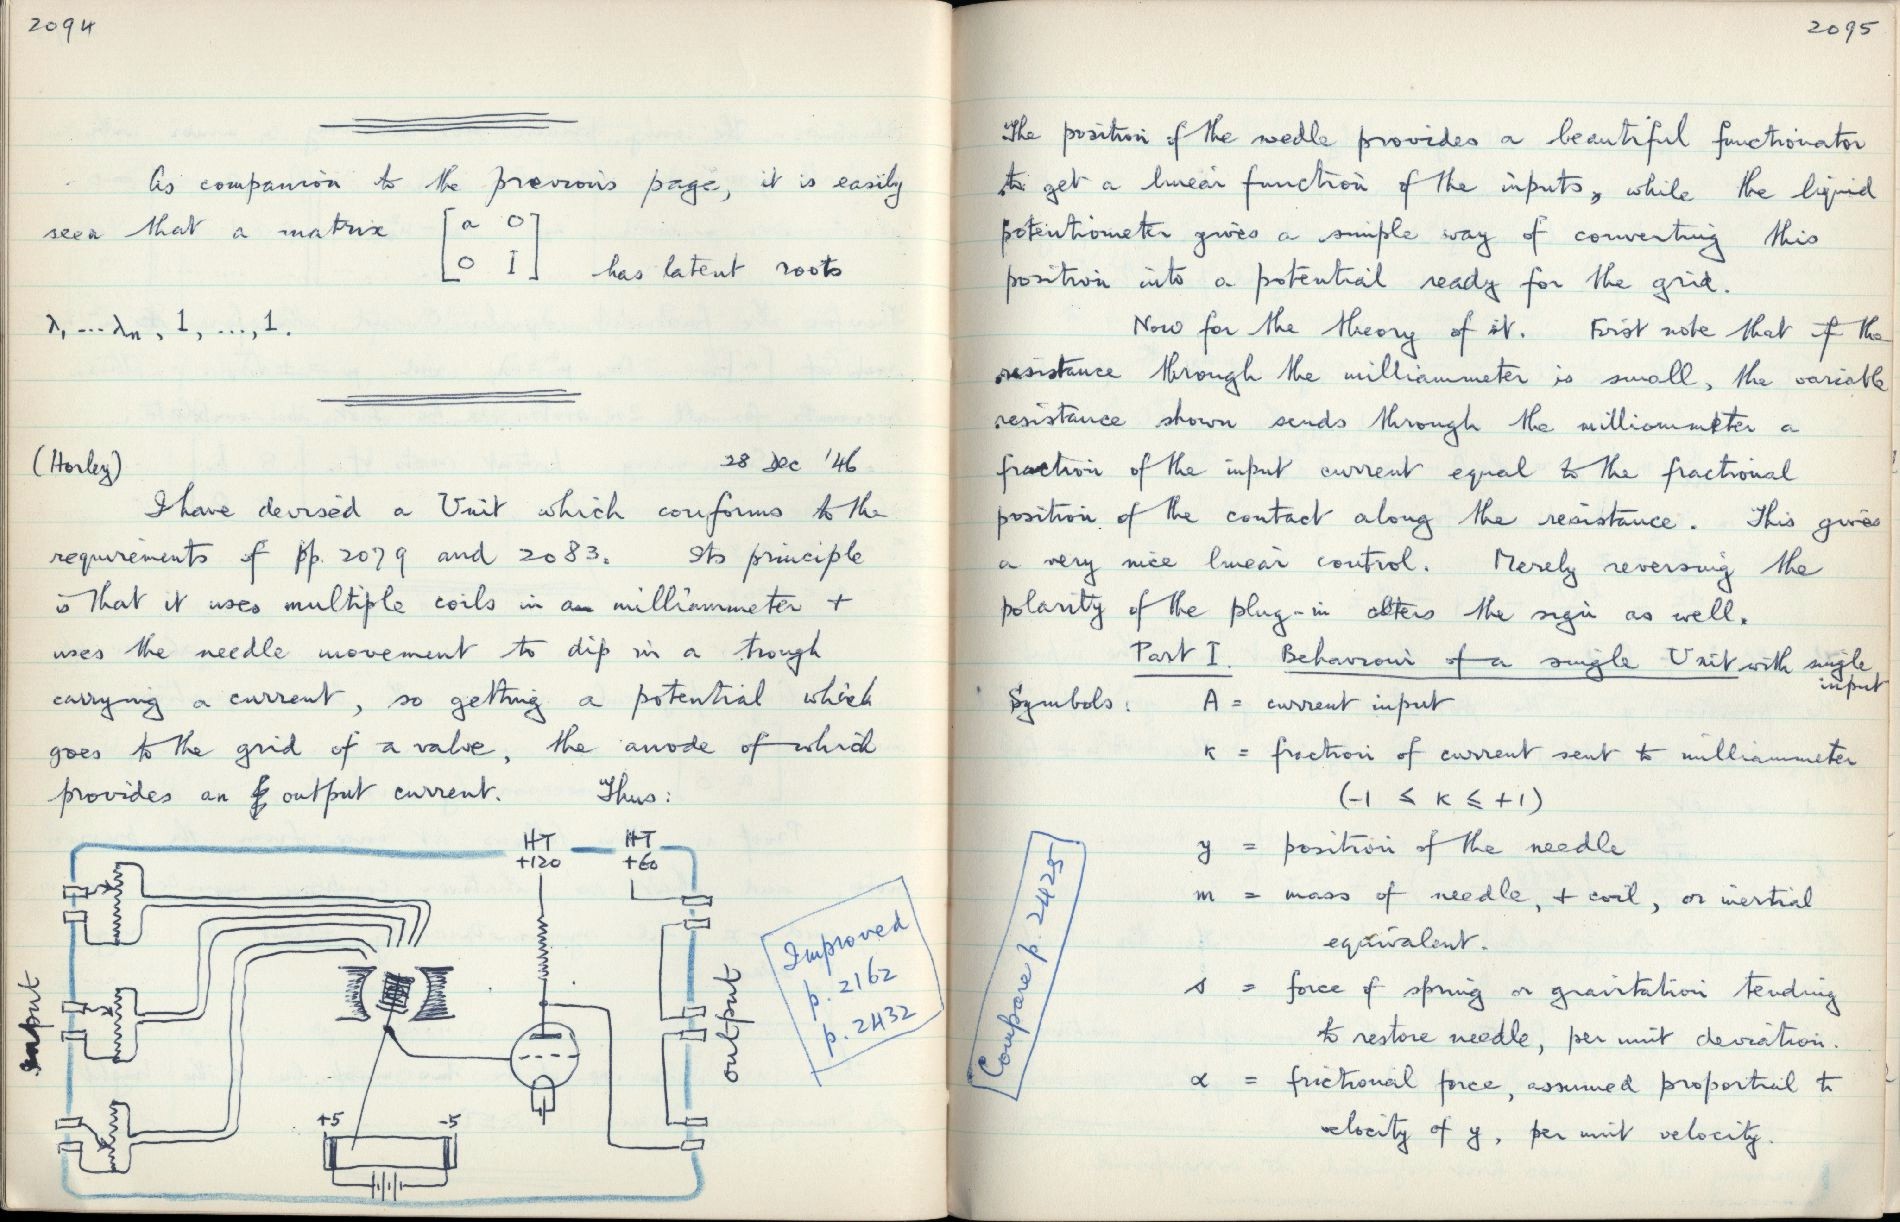 2094
As companion to the previous page, it is easily
seen that a matrix [a 0
0 I] has latent roots
λ, ... λn, 1, ..., 1.
(Horley) 28 Dec '46
I have devised a Unit which conforms to the
requirements of pp. 2079 and 2083. Its principle
is that it uses multiple coils in a milliammeter +
uses the needle movement to dip in a trough
carrying a current, so getting a potential which
goes to the grid of a valve, the anode of which
provides an output current. Thus:
HT
+120
HT
+60
input
output
+5
-5
Improved
p. 2162
p. 2432
2095
The position of the needle provides a beautiful functionator
to get a linear function of the inputs, while the liquid
potentiometer gives a simple way of converting this
position into a potential ready for the grid.
Now for the theory of it. First note that if the
resistance through the milliammeter is small, the variable
resistance shown sends through the milliammeter a
fraction of the input current equal to the fractional
position of the contact along the resistance. This gives
a very nice linear control. Merely reversing the
polarity of the plug-in alters the sign as well.
Part I. Behaviour of a single Unit with single
input
Symbols: A = current input
κ = fraction of current sent to milliammeter
(-1 ≤ κ ≤ +1)
y = position of the needle
m = mass of needle, + coil, or inertial
equivalent.
s = force of spring or gravitation tending
to restore needle, per unit deviation.
α = frictional force, assumed proportial to
velocity of y, per unit velocity.
Compare p. 2425